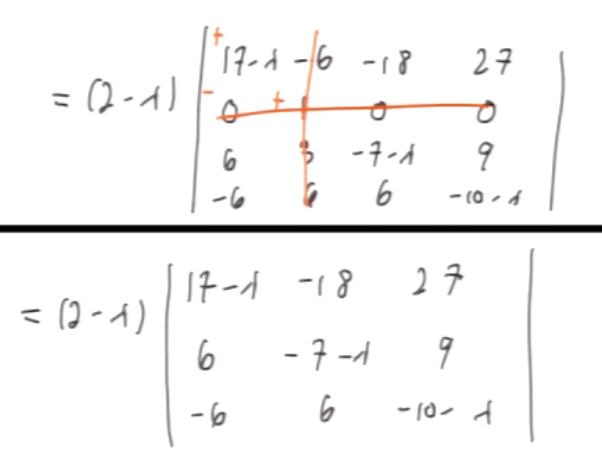 +
17-λ -6 -18 27
= (2-λ) - 0 + 1 0 0
6 3 -7-λ 9
-6 6 6 -10-λ
17-λ -18 27
= (2-λ) 6 -7-λ 9
-6 6 -10-λ